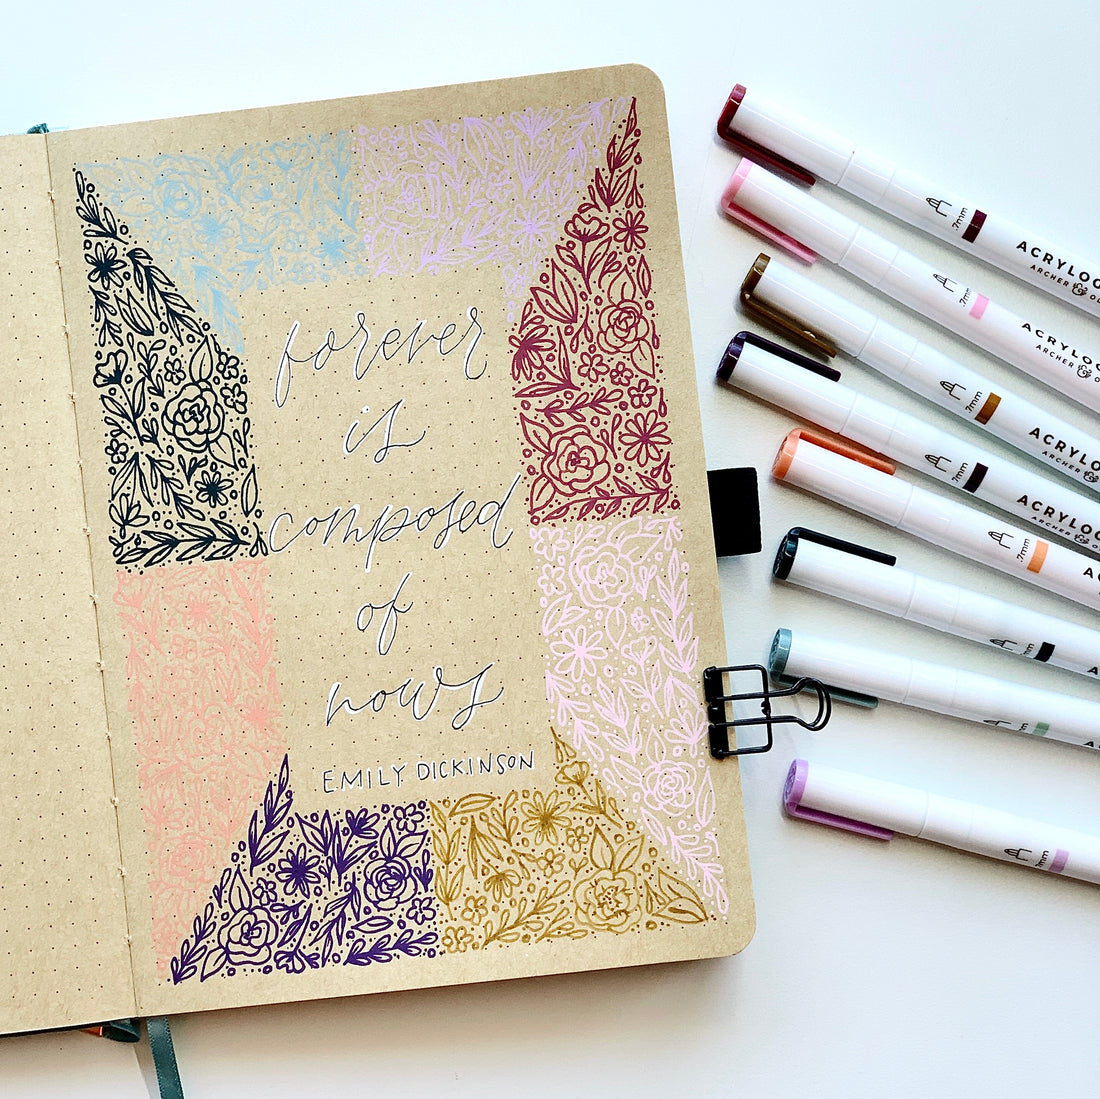 forever
is
composed
of
nows
EMILY DICKINSON
.7mm
ACRYLOG
ARCHER & OL
.7mm
ACRYLOG
ARCHER & O
.7mm
ACRYLO
ARCHER &
.7mm
ACRYLO
ARCHER &
.7mm
AC
.7mm
A
.7mm
A
.7mm